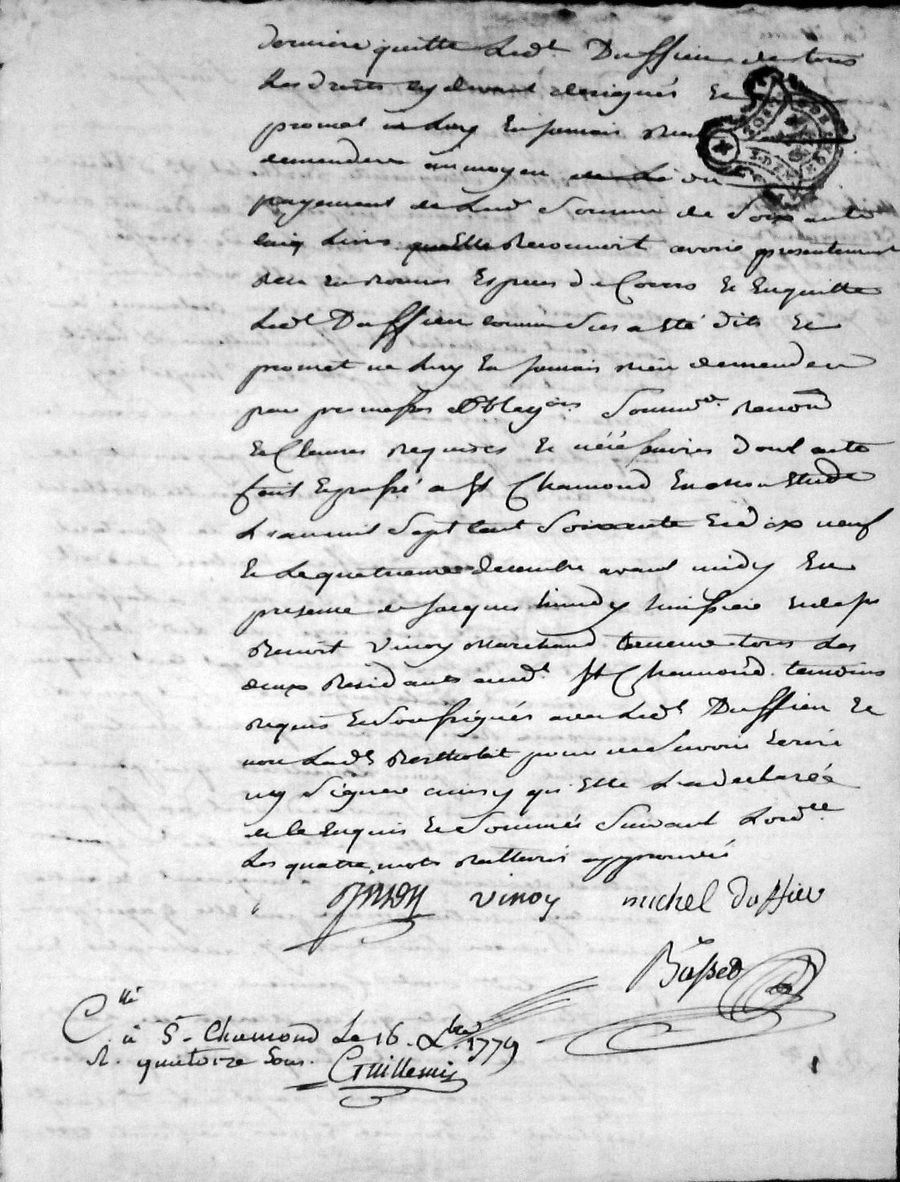 derniere quitte Led.t Duffieu de tous
Les droits cy devant designés Et
promet ne Luy En jamais Rien
demender au moyen du
payement de Lad. Somme de Soixante
cinq Livres quelle Reconnoit avoir presentement
Reçu En bonnes Especes de Cours Et Enquitte
Led.t Duffieu comme dies a Eté dits Et
promet ne Luy En jamais Rien demender
par promesses obliga.ons Soum.ons Renon.
Et Clauses Requises Et nécéssaires dont acte
fait Et passé a St Chamond En mon Etude
L'an mil Sept Cent Soixante Et dix neuf
Et Le quatrieme decembre avant midy En
présence de Jacques huissier Et de Sr
Benoit Vinoy Marchand tous Les
deux Residants aud.t St Chamond temoins
Requis Et Soussignés avec Led.t Duffieu Et
non Lad.te Bertholat pour ne Savoir Ecrire
ny Signer ainsy qu'Elle L'a declarée
de ce Enquis Et Sommée Suivant L'ord.ce
Les quatre mots Raturés approuvés
vinoy michel Duffieu
C.lé
à St Chamond Le 16 Xbre 1779
R. quatorze Sous.
Guillemin